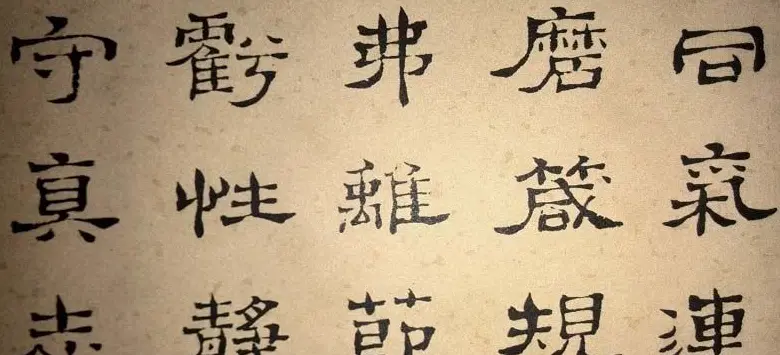 同氣連
磨箴規
弗離節
虧性靜
守真志